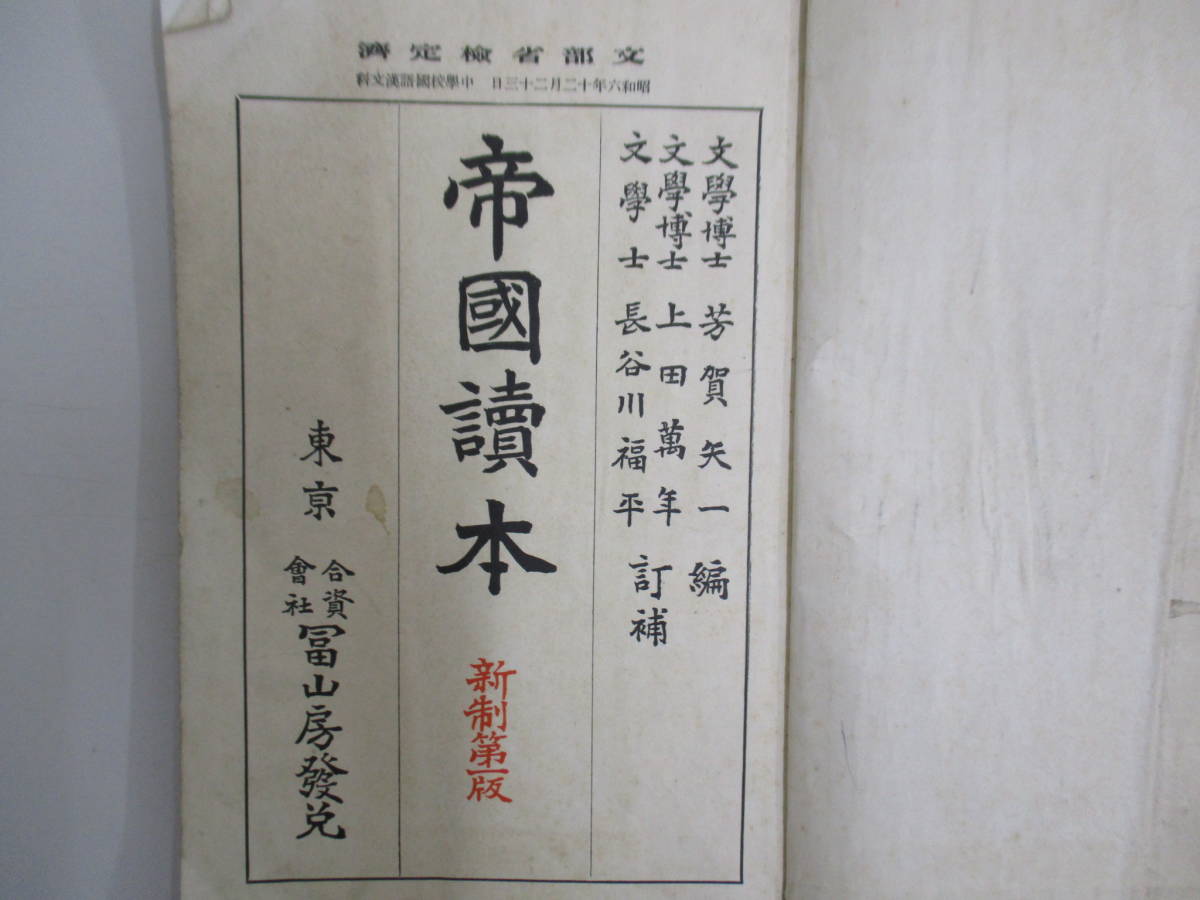 文部省檢定濟
昭和六年十二月二十三日 中學校國語漢文科
文學博士 芳賀矢一 編
文學博士 上田萬年
文學士 長谷川福平 訂補
帝國讀本
新制第一版
東京 合資會社 冨山房發兌